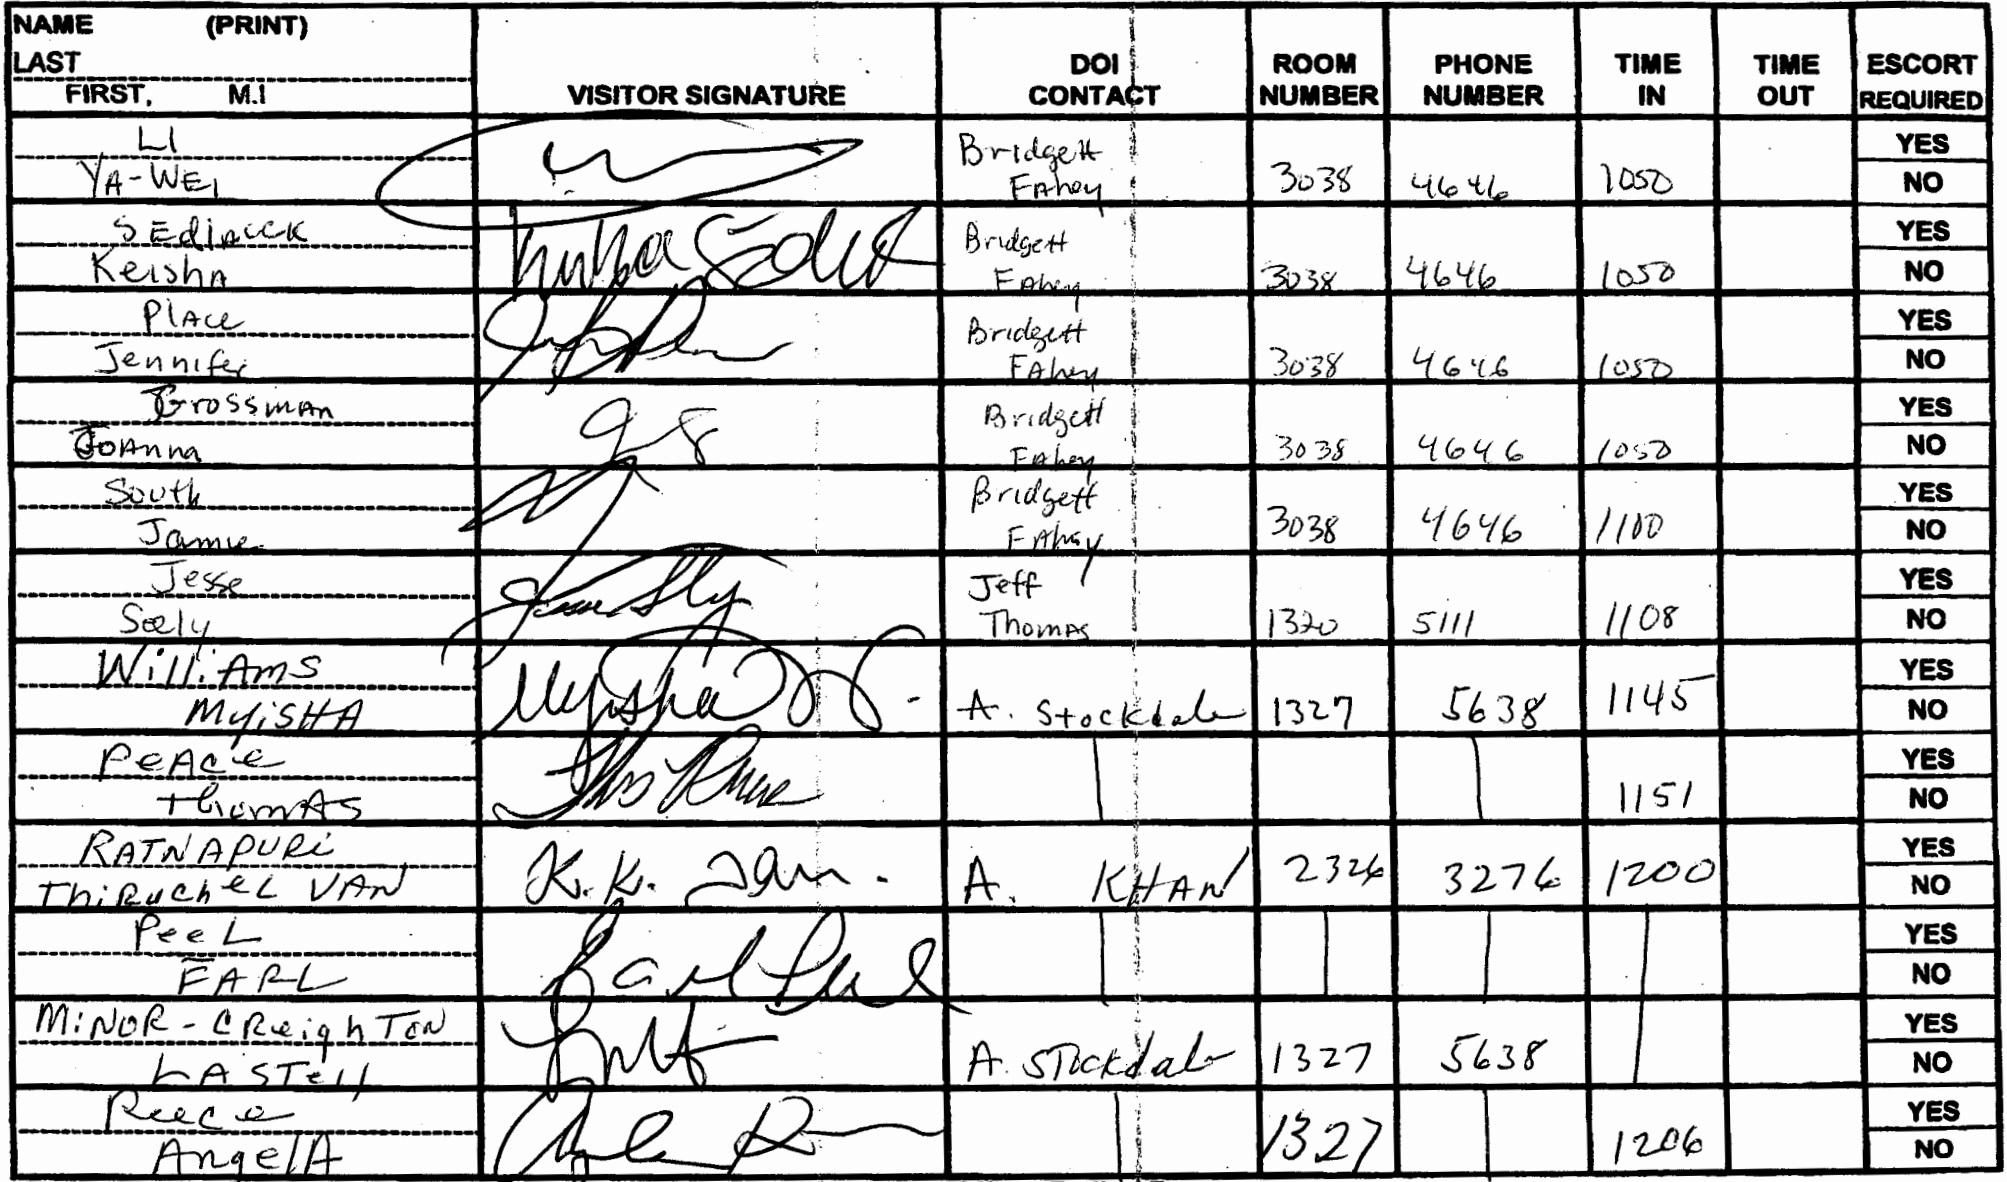 NAME (PRINT)
LAST
FIRST, M.I
VISITOR SIGNATURE
DOI
CONTACT
ROOM
NUMBER
PHONE
NUMBER
TIME
IN
TIME
OUT
ESCORT
REQUIRED
LI
YA-WEI
Bridgett
FAhey
3038 4646 1050
YES
NO
SEdlACCK
KeishA
Bridgett
FAhey
3038 4646 1050
YES
NO
PlAce
Jennifer
Bridgett
FAhey
3038 4646 1050
YES
NO
Grossman
JoAnna
Bridgett
FAhey
3038 4646 1050
YES
NO
South
Jamie
Bridgett
FAhey
3038 4646 1100
YES
NO
Jesse
Seely
Jeff
Thomas
1320 5111 1108
YES
NO
WilliAmS
MyiSHA
Myisha
A. Stockdale 1327 5638 1145
YES
NO
PeAce
thomAS
1151
YES
NO
RATNAPURi
ThiRuchel VAN
K.K.
A. KHAN 2326 3276 1200
YES
NO
PeeL
EARL
Earl Peel
YES
NO
MiNOR-CReighTON
LASTell
A. Stockdale 1327 5638
YES
NO
Reece
AngelA
1327 1206
YES
NO